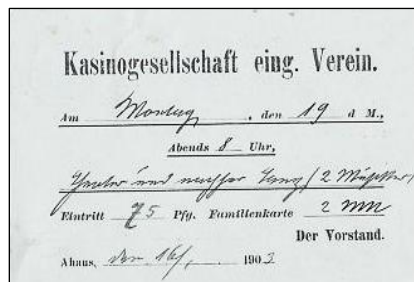 Kasinogesellschaft eing. Verein.
Am Montag, den 19 d M.,
Abends 8 Uhr,
Theater und nachher Tanz (2 Musiker)
Eintritt 75 Pfg. Familienkarte 2 MM
Der Vorstand.
Ahaus, den 16/ 1903